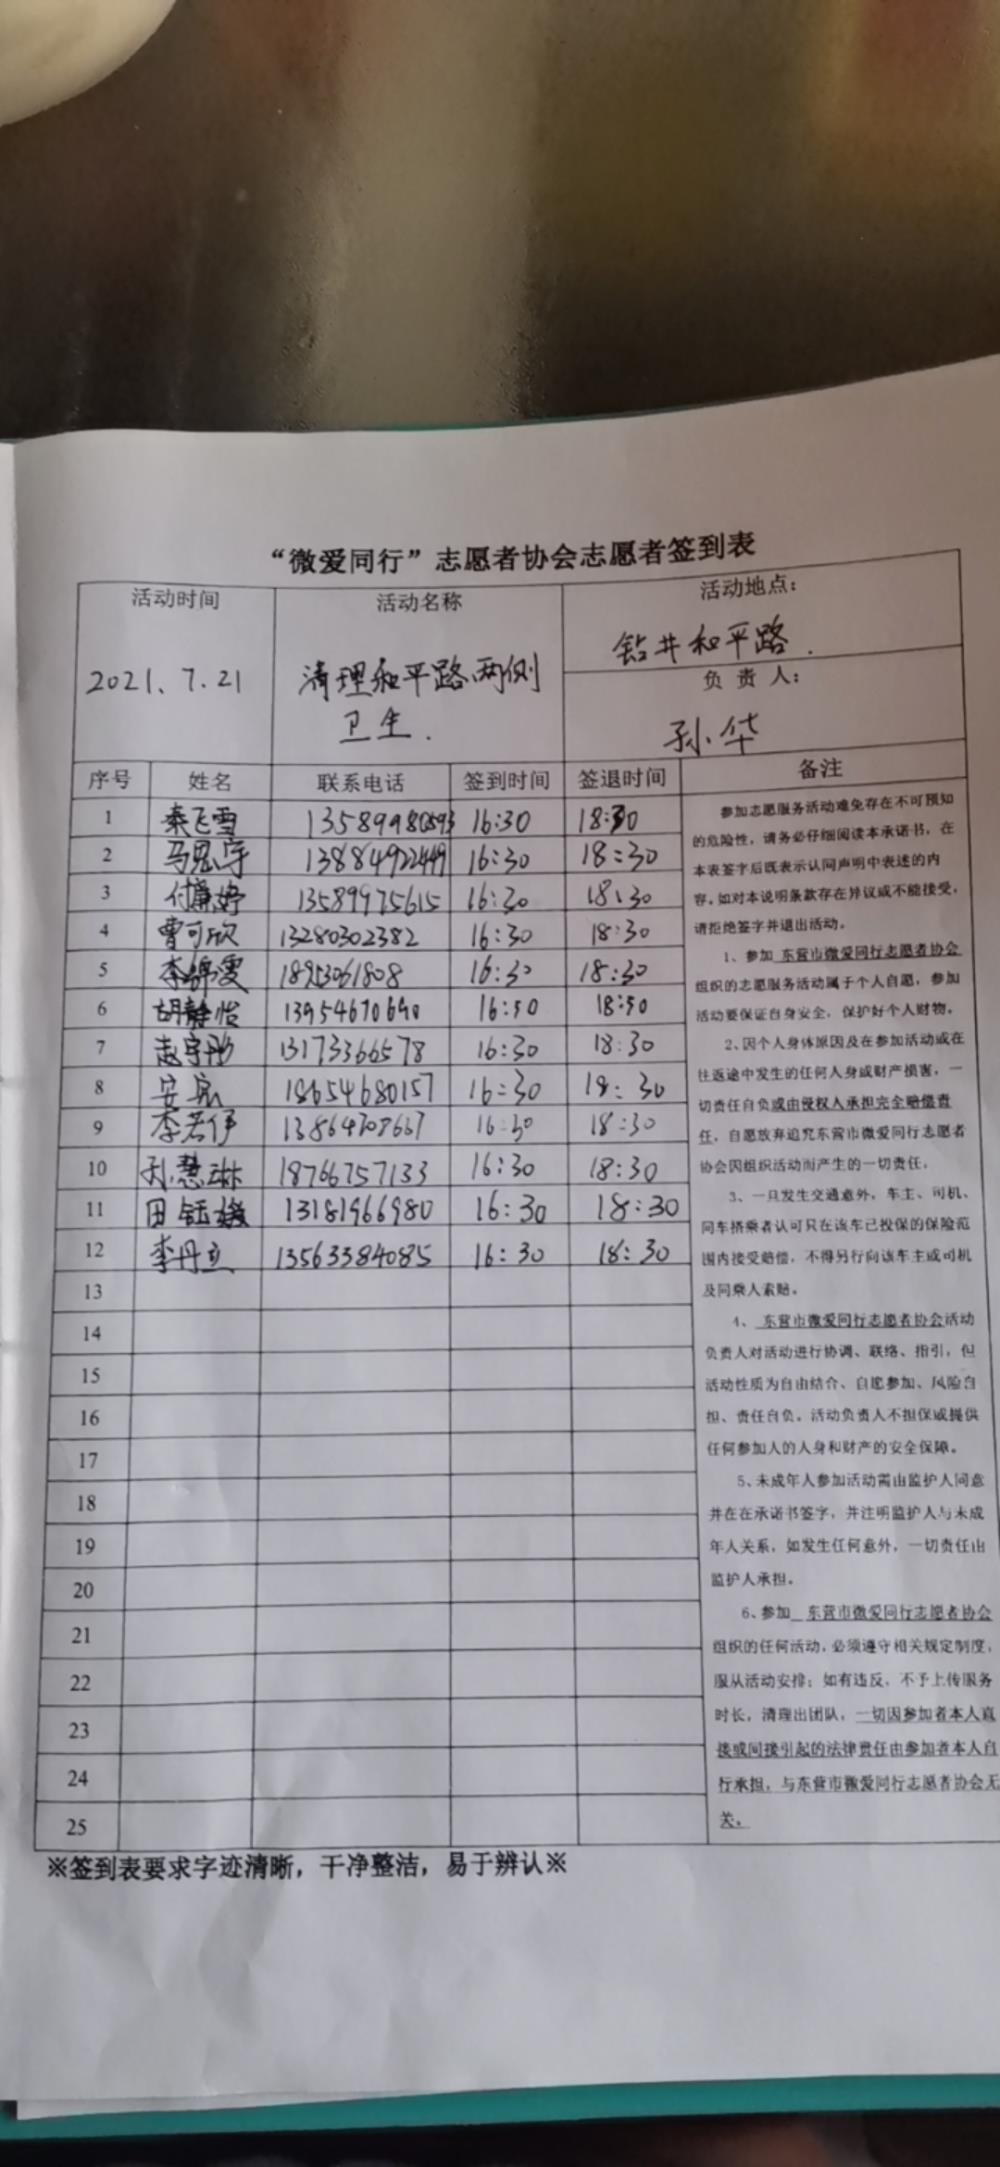 “微爱同行”志愿者协会志愿者签到表
活动时间 活动名称 活动地点：
钻井和平路.
2021.7.21 清理和平路两侧
卫生.
负责人：
孙华
序号 姓名 联系电话 签到时间 签退时间 备注
1 秦飞雪 13589980893 16:30 18:30
2 马思宇 13884922449 16:30 18:30
3 付 婷 13589975615 16:30 18:30
4 曹可欣 13280302382 16:30 18:30
5 李锦雯 16:30 18:30
6 胡静怡 13954670690 16:30 18:30
7 赵宇彤 13173366578 16:30 18:30
8 安 18654680157 16:30 18:30
9 李若伊 16:30 18:30
10 孙慧琳 18766757133 16:30 18:30
11 田钰 13181966980 16:30 18:30
12 李丹立 13563384085 16:30 18:30
13
14
15
16
17
18
19
20
21
22
23
24
25
参加志愿服务活动难免存在不可预知
的危险性，请务必仔细阅读本承诺书，在
本表签字后既表示认同声明中表述的内
容。如对本说明条款存在异议或不能接受，
请拒绝签字并退出活动。
1、参加 东营市微爱同行志愿者协会
组织的志愿服务活动属于个人自愿，参加
活动要保证自身安全，保护好个人财物。
2、因个人身体原因及在参加活动或在
往返途中发生的任何人身或财产损害，一
切责任自负或由侵权人承担完全赔偿责
任，自愿放弃追究东营市微爱同行志愿者
协会因组织活动而产生的一切责任。
3、一旦发生交通意外，车主、司机、
同车搭乘者认可只在该车已投保的保险范
围内接受赔偿，不得另行向该车主或司机
及同乘人索赔。
4、 东营市微爱同行志愿者协会活动
负责人对活动进行协调、联络、指引，但
活动性质为自由结合、自愿参加、风险自
担、责任自负。活动负责人不担保或提供
任何参加人的人身和财产的安全保障。
5、未成年人参加活动需由监护人同意
并在在承诺书签字，并注明监护人与未成
年人关系，如发生任何意外，一切责任由
监护人承担。
6、参加 东营市微爱同行志愿者协会
组织的任何活动，必须遵守相关规定制度，
服从活动安排；如有违反，不予上传服务
时长，清理出团队，一切因参加者本人直
接或间接引起的法律责任由参加者本人自
行承担，与东营市微爱同行志愿者协会无
关。
※签到表要求字迹清晰，干净整洁，易于辨认※